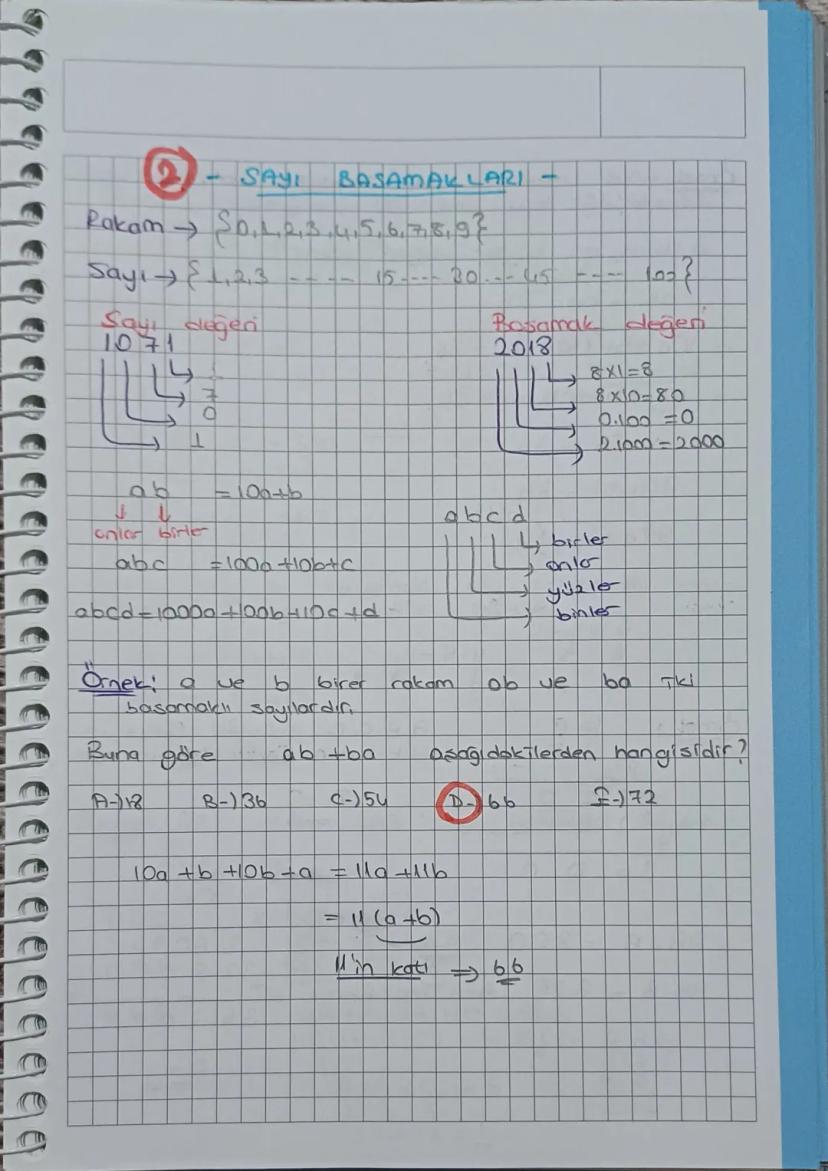 2 - SAYI BASAMAKLARI -
Rakam → {0,1,2,3,4,5,6,7,8,9}
Sayı → {1,2,3 ---- 15---- 20...45 ----
Sayı değeri
1071
7
0
1
Basamak değeri
2018
8x1=8
8x10=80
0.100=0
2.1000=2000
ab = 10a+b
onlar birler
abc = 100a+10b+c
abcd=1000a+100b+10c+d
abcd
birler
onlar
yüzler
binler
Örnek: a ve b birer rakam ab ve ba iki
basamaklı sayılardır.
Buna göre ab+ba aşağıdakilerden hangisidir?
A-)18 B-)36 C-)54 D-)66 E-)72
10a+b+10b+a = 11a+11b
= 11(a+b)
11'in katı ⇒ 66